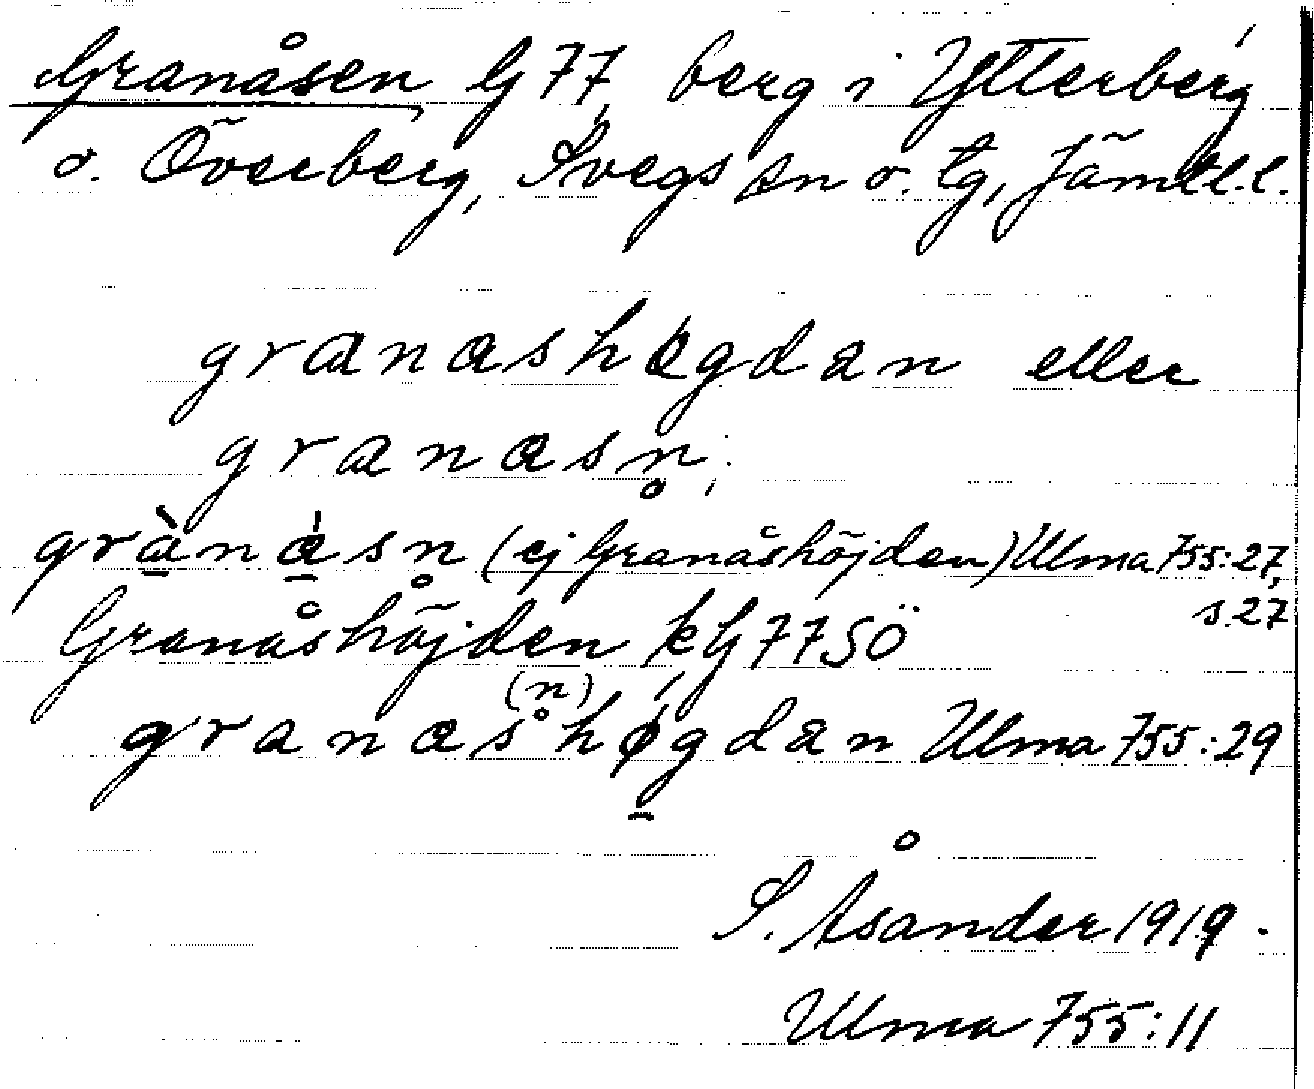 Granåsen G 77, berg i Ytterberg
o. Överberg, Svegs sn o. tg, Jämtl. l.
granashøgdan eller
granasn̥;
grànásn̥ (ej Granåshöjden) Ulma 755:27,
s. 27
Granåshöjden kG 77 SÖ
(n̥)
granashøgdan Ulma 755:29
S. Åsander 1919.
Ulma 755:11